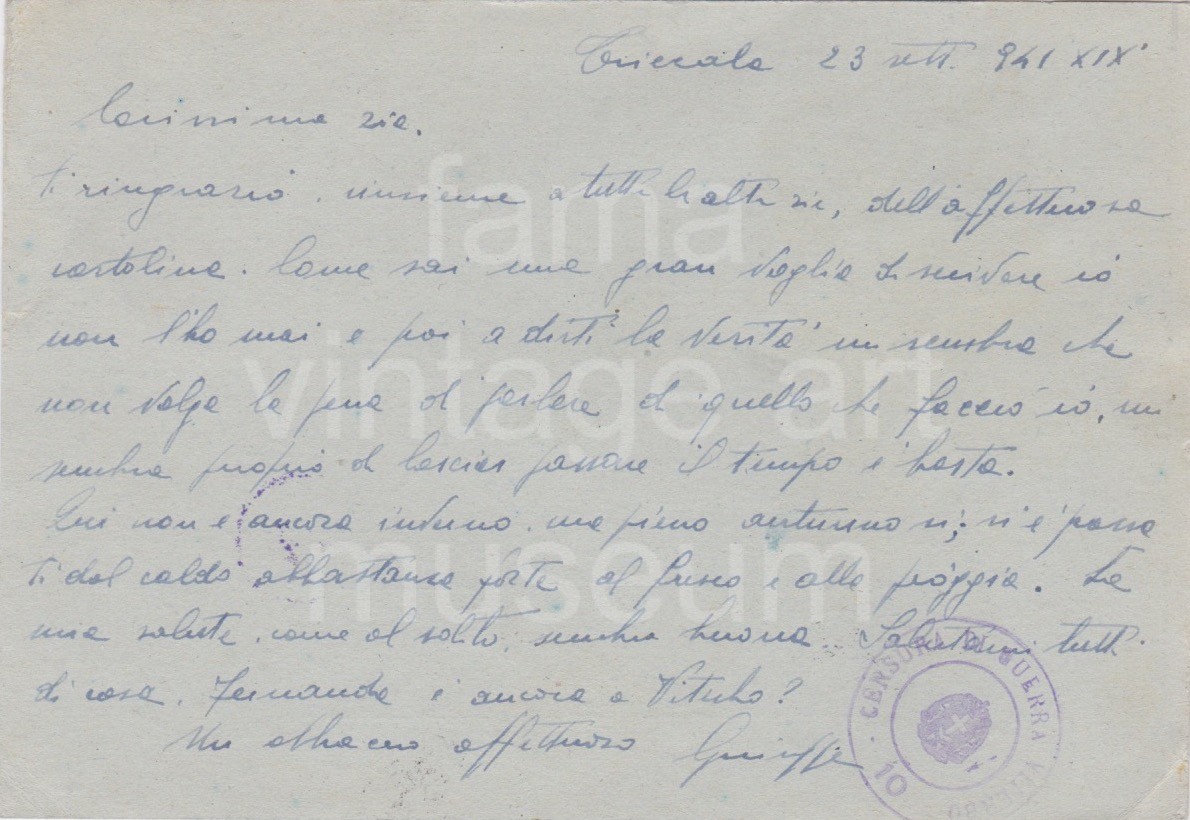 Triccala 23 sett. 941 XIX°
Carissima zia.
Ti ringrazio, insieme a tutte le altre zie, dell'affettuosa
cartolina. Come sai una gran voglia di scrivere io
non l'ho mai e poi a dirti la verità mi sembra che
non valga la pena di parlare di quello che faccio io, mi
sembra proprio di lasciar passare il tempo e basta.
Qui non è ancora inverno, ma pieno autunno sì; si è passa
ti dal caldo abbastanza forte al fresco e alla pioggia. La
mia salute, come al solito, sembra buona. Salutami tutti
di casa. Fernanda è ancora a Viterbo?
Un abbraccio affettuoso Giuseppe
fama
vintage art
museum
CENSURA DI GUERRA
10